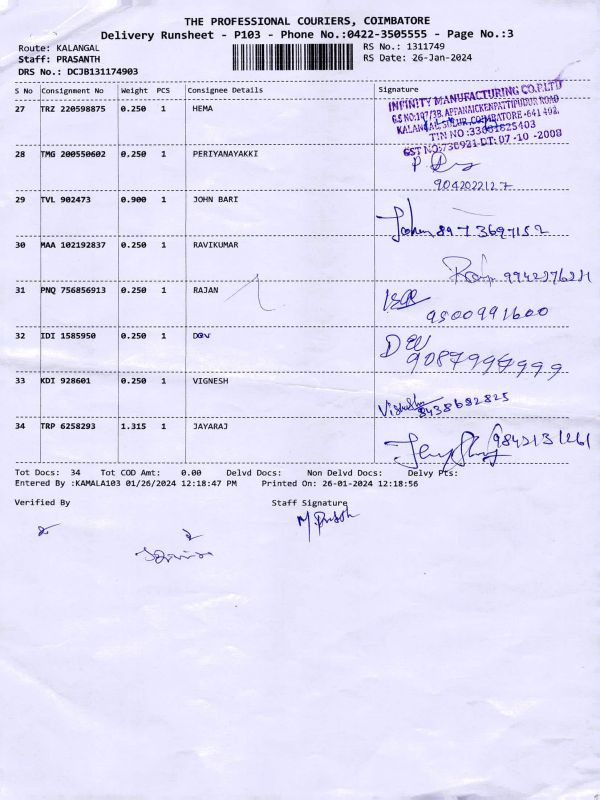 THE PROFESSIONAL COURIERS, COIMBATORE
Delivery Runsheet - P103 - Phone No.:0422-3505555 - Page No.:3
Route: KALANGAL RS No.: 1311749
Staff: PRASANTH RS Date: 26-Jan-2024
DRS No.: DCJB131174903
S No Consignment No Weight PCS Consignee Details Signature
INFINITY MANUFACTURING CO.P.LTD
G.S NO:197/3B, APPANAICKENPATTIPUDUR ROAD
KALANGAL, SULUR, COIMBATORE-641 402.
GST NO:730921 DT: 07-10-2008
27 TRZ 220598875 0.250 1 HEMA
28 TMG 200550602 0.250 1 PERIYANAYAKKI
9042022127
29 TVL 902473 0.900 1 JOHN BARI
8973697152
30 MAA 102192837 0.250 1 RAVIKUMAR
31 PNQ 756856913 0.250 1 RAJAN
9500991600
32 IDI 1585950 0.250 1 DEV
DEV
9087999999
33 KDI 928601 0.250 1 VIGNESH
8438692825
34 TRP 6258293 1.315 1 JAYARAJ
Tot Docs: 34 Tot COD Amt: 0.00 Delvd Docs: Non Delvd Docs: Delvy Pts:
Entered By :KAMALA103 01/26/2024 12:18:47 PM Printed On: 26-01-2024 12:18:56
Verified By Staff Signature